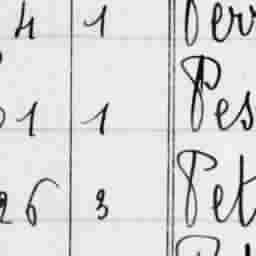 4 1 Perr
1 1 Pes
26 3 Pet